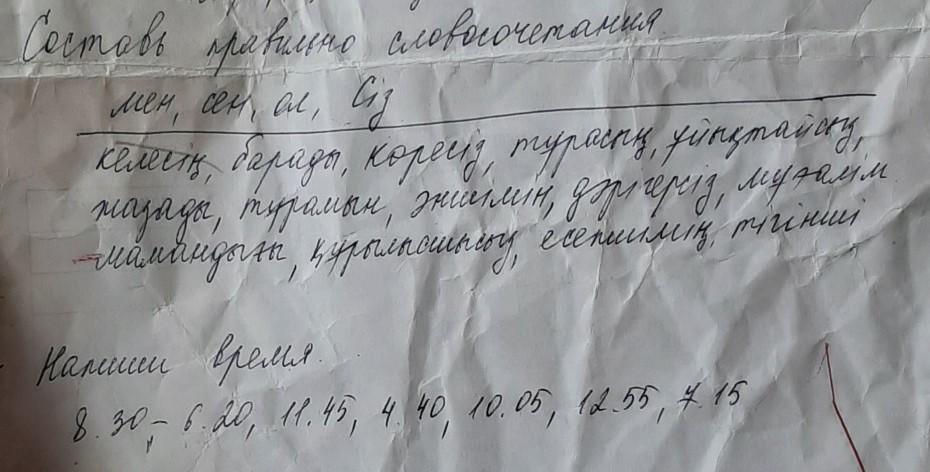 Составь правильно словосочетания.
мен, сен, ол, Сіз
келесің, барады, көресіз, турасың, ұйықтайсың,
жазады, турамын, әншімін, дәрігерсіз, мұғалім
мамандығы, құрылысшысың, есепшімін, тігінші
Напиши время.
8.30, 6.20, 11.45, 4.40, 10.05, 12.55, 7.15